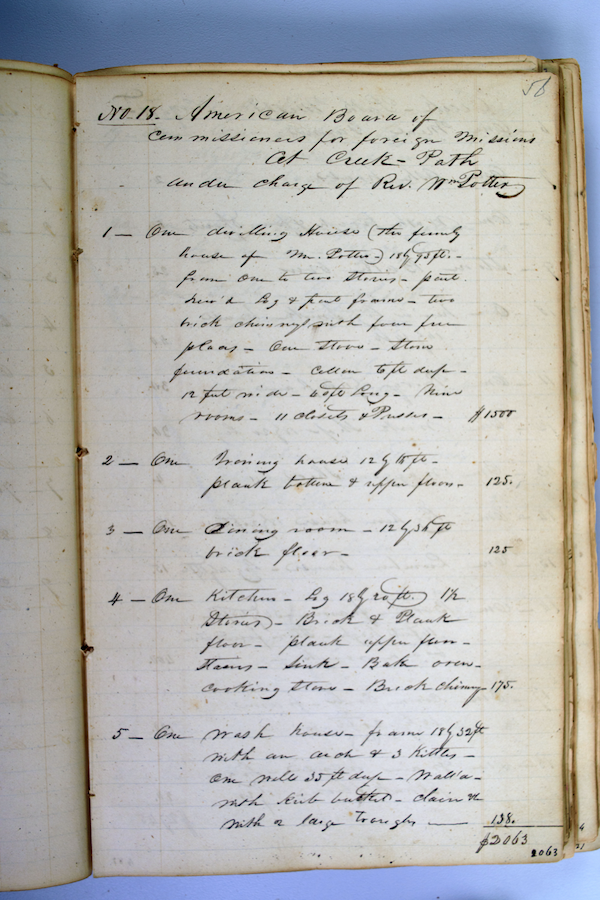 58
No. 18. American Board of
Commissioners for foreign Missions
At Creek-Path
under charge of Rev. Wm Potter
1 — One dwelling House (the family
house of Mr. Potter) 18 by 95 ft. -
from One to two Stories - part
hew'd Log & part frame - two
brick chimneys with four fire
places - One Stove - Stone
foundation - Cellar 6 ft deep -
12 feet wide - 60 ft Long - Nine
rooms - 11 closets & Presses - $1500
2 — One Ironing house 12 by 18 ft -
plank bottom & upper floor - 125.
3 — One Dining room - 12 by 36 ft
brick floor - 125
4 — One Kitchen - Log 18 by 20 ft 1 1/2
Stories - Brick & Plank
floor - plank upper floor -
Steers - Sink - Bake oven -
cooking Stove - Brick chimney - 175.
5 — One Wash house - frame 18 by 32 ft
with an arch & 3 Kettles -
One well 35 ft deep - Wall'd -
with Kirb bucket - chain &c
with 2 large troughs — 138.
$2063
2063
4
21